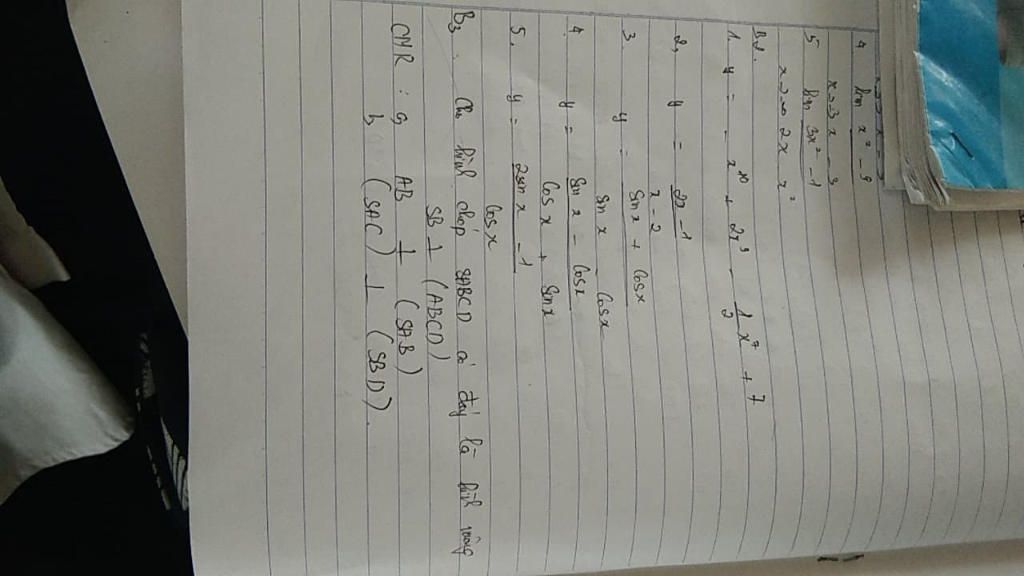 4 lim x² - 9
x→3 x - 3
5 lim 3x² - 1
x→∞ 2x - x²
B2.
1. y = - x¹⁰ + 2x⁹ - 1/2 x⁷ + 7
2, y = 2x - 1
x - 2
3 y = sin x + cos x
sin x - cos x
4. y = sin x - cos x
cos x + sin x
5. y = 2 sin x - 1
cos x
B3. Cho hình chóp SABCD có đáy là hình vuông
SB ⊥ (ABCD)
CMR : a, AB ⊥ (SAB)
b, (SAC) ⊥ (SBD).